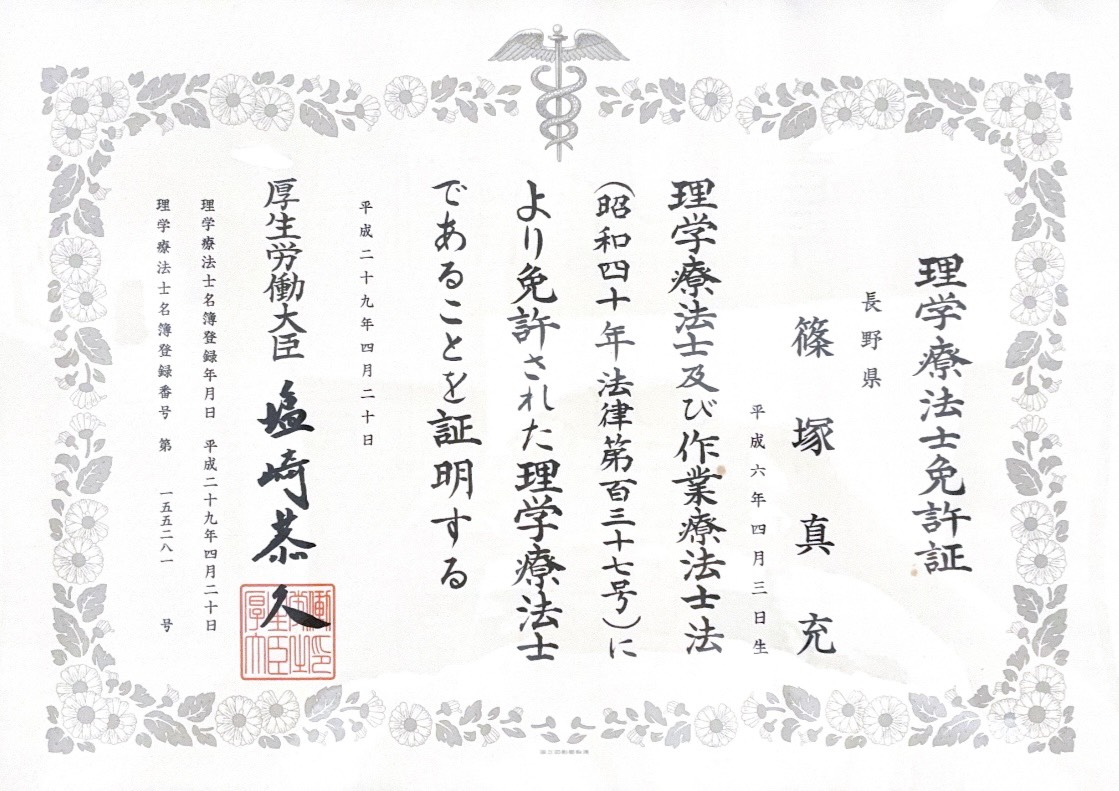 理学療法士免許証
長野県
篠塚真充
平成六年四月三日生
理学療法士及び作業療法士法
（昭和四十年法律第百三十七号）に
より免許された理学療法士
であることを証明する
平成二十九年四月二十日
厚生労働大臣 塩崎恭久
理学療法士名簿登録年月日 平成二十九年四月二十日
理学療法士名簿登録番号 第 一五五二八一 号